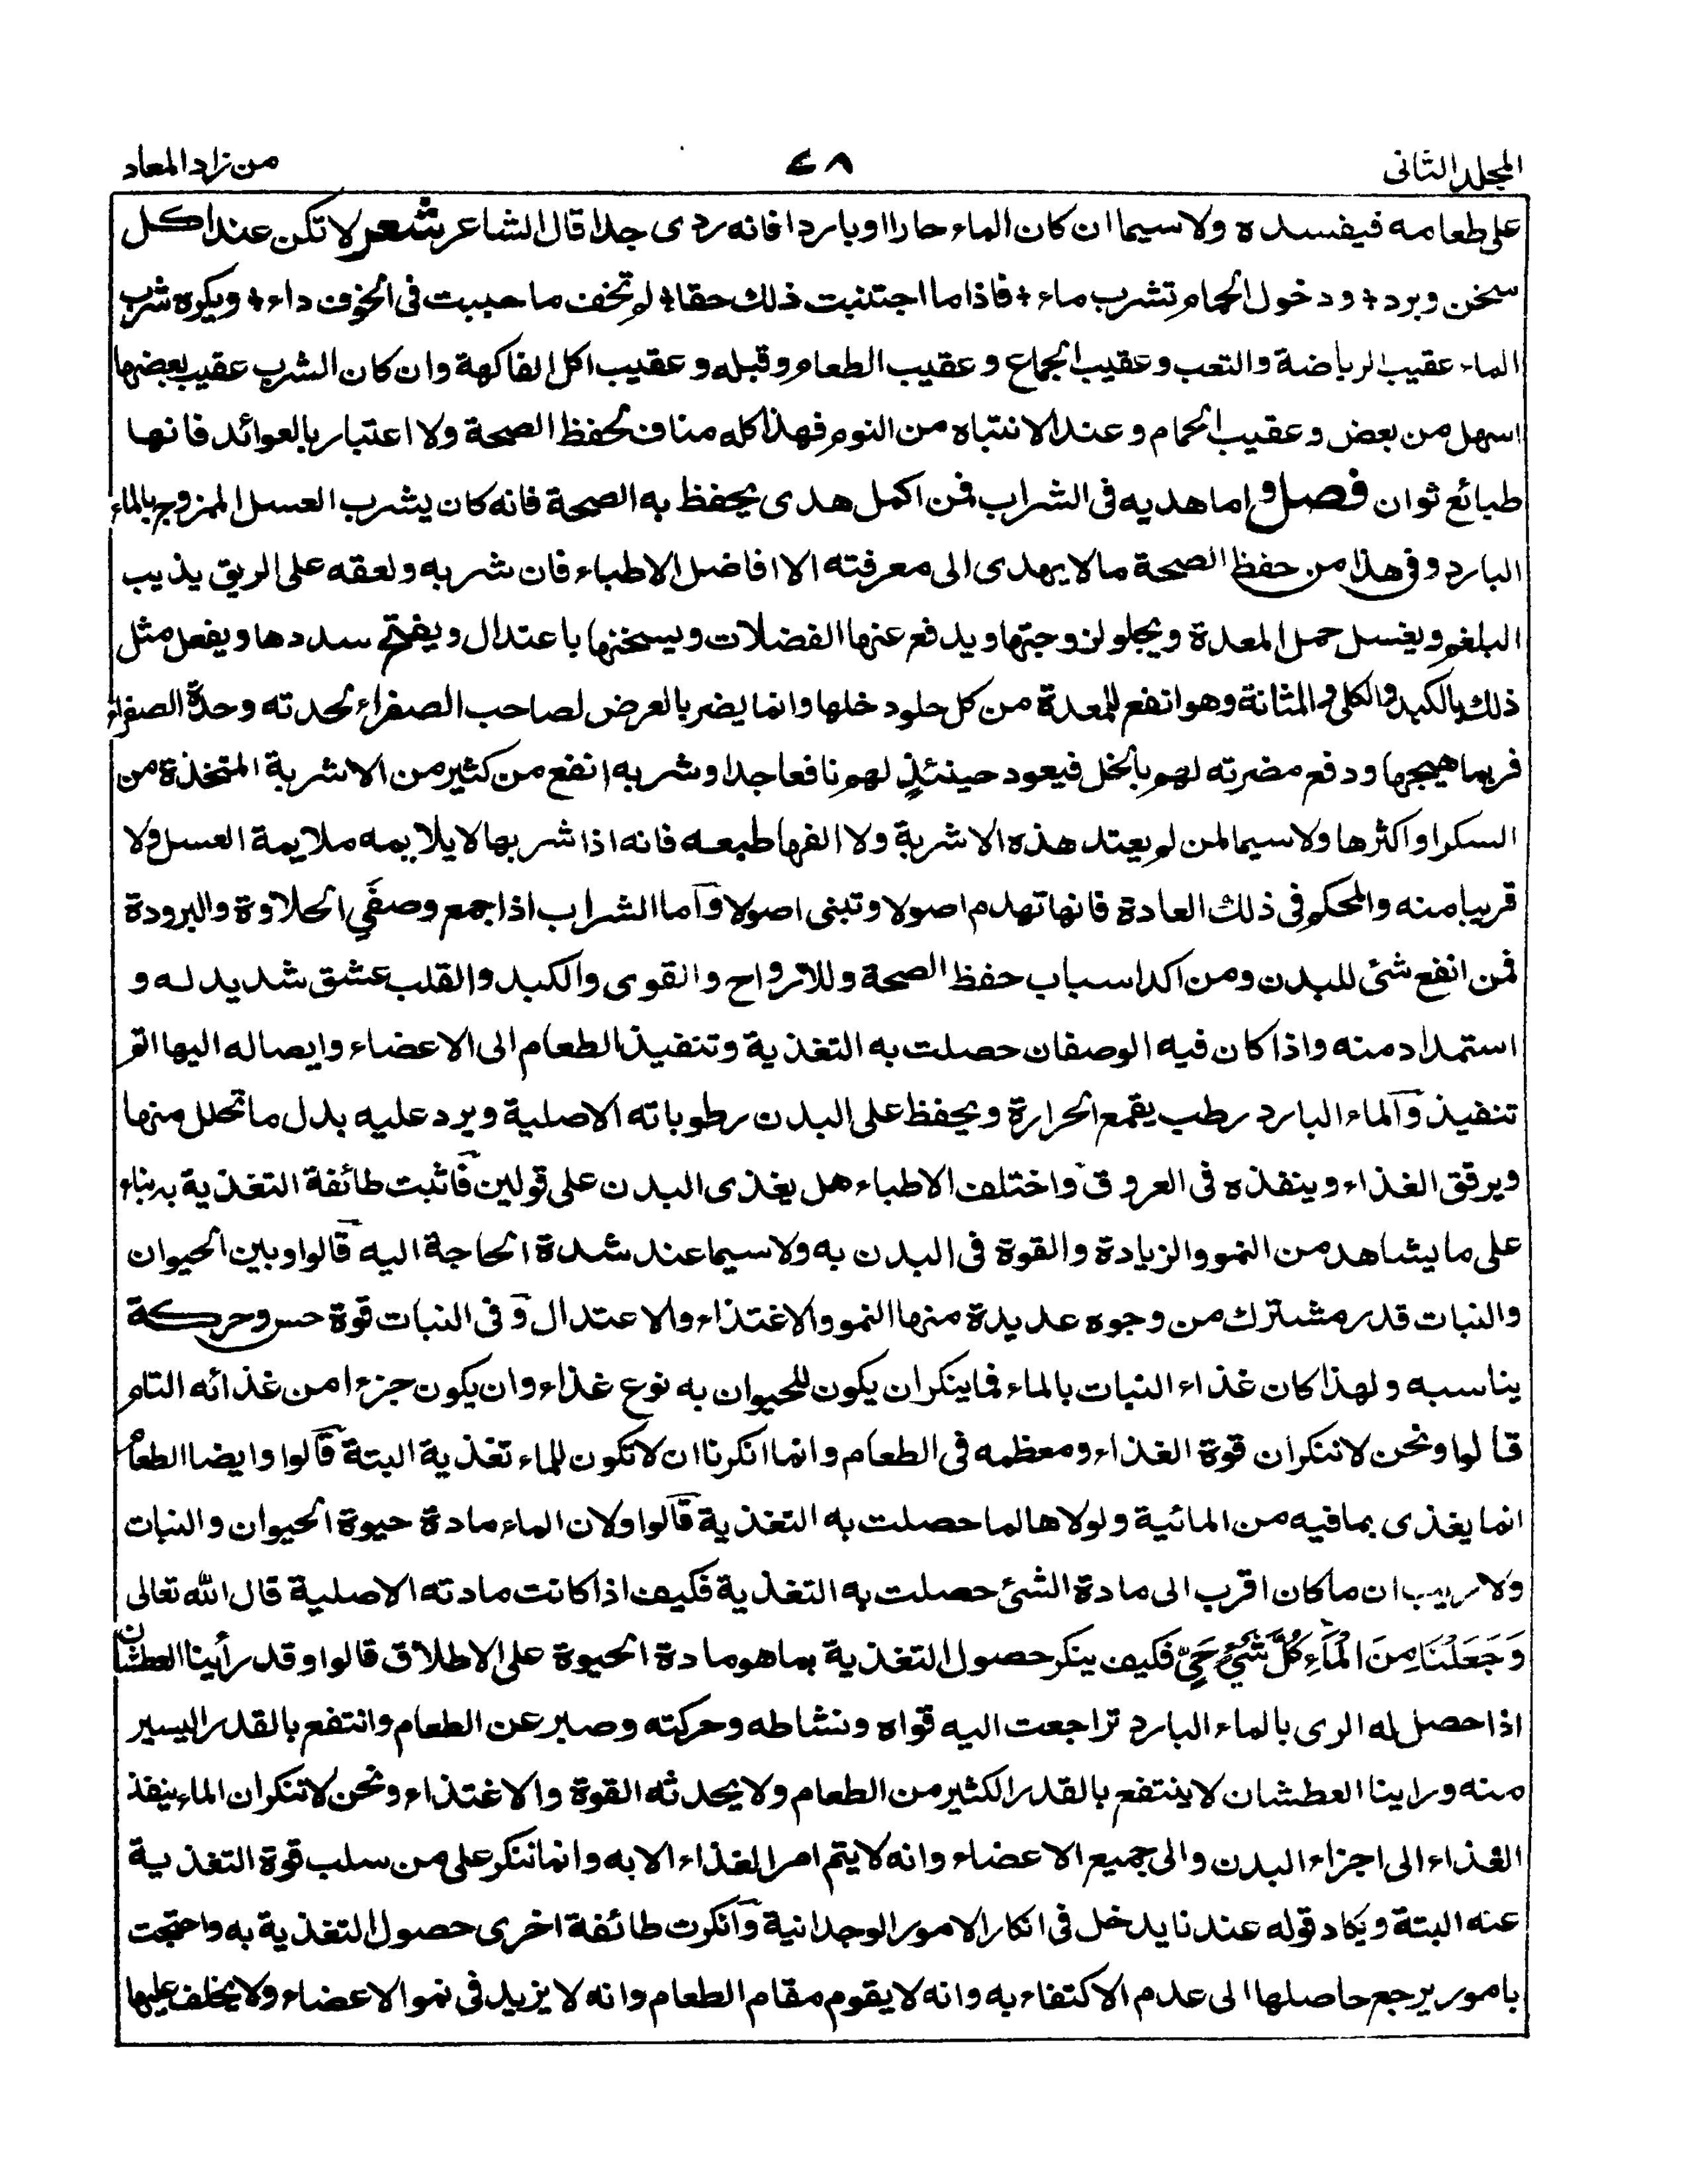 المجلد الثانى
٤٨
من زاد المعاد
على طعامه فيفسده ولا سيما ان كان الماء حارا او باردا فانه ردى جدا قال الشاعر شعر لا تكن عند اكل
سخن وبرد ÷ ودخول الحمام تشرب ماء ÷ فاذا ما اجتنبت ذلك حقا ÷ لم تخف ما حييت فى الخوف داء ÷ ويكره شرب
الماء عقيب الرياضة والتعب وعقيب الجماع وعقيب الطعام وقبله وعقيب اكل الفاكهة وان كان الشرب عقيب بعضها
اسهل من بعض وعقيب الحمام وعند الانتباه من النوم فهذا كله مناف لحفظ الصحة ولا اعتبار بالعوائد فانها
طبائع ثوان فصل واما هديه فى الشراب فمن اكمل هدى يحفظ به الصحة فانه كان يشرب العسل الممزوج بالماء
البارد وفى هذا من حفظ الصحة مالا يهدى الى معرفته الا افاضل الاطباء فان شربه ولعقه على الريق يذيب
البلغم ويغسل حمل المعدة ويجلو لزوجتها ويدفع عنها الفضلات ويسخنها باعتدال ويفتح سددها ويفعل مثل
ذلك بالكبد والكلى والمثانة وهو انفع للمعدة من كل حلو دخلها وانما يضر بالعرض لصاحب الصفراء لحدته وحدة الصفراء
فربما هيجها ودفع مضرته لهم بالخل فيعود حينئذٍ لهم نافعا جدا وشربه انفع من كثير من الاشربة المتخذة من
السكر او اكثرها ولا سيما لمن لم يعتد هذه الاشربة ولا الفها طبعه فانه اذا شربها لا يلايمه ملايمة العسل ولا
قريبا منه والمحكم فى ذلك العادة فانها تهدم اصولا وتبنى اصولا وآما الشراب اذا جمع وصفَي الحلاوة والبرودة
فمن انفع شئ للبدن ومن اكد اسباب حفظ الصحة وللارواح والقوى والكبد والقلب عشق شديد له و
استمداد منه واذا كان فيه الوصفان حصلت به التغذية وتنفيذ الطعام الى الاعضاء وايصاله اليها اتم
تنفيذ وآلماء البارد رطب يقمع الحرارة ويحفظ على البدن رطوباته الاصلية ويرد عليه بدل ما تحلل منها
ويرقق الغذاء وينفذه فى العروق واختلف الاطباء هل يغذى البدن على قولين فآثبت طائفة التغذية به بناء
على ما يشاهد من النمو والزيادة والقوة فى البدن به ولا سيما عند شدة الحاجة اليه قآلوا وبين الحيوان
والنبات قدر مشترك من وجوه عديدة منها النمو والاغتذاء والاعتدال وٓ فى النبات قوة حس وحركة
يناسبه ولهذا كان غذاء النبات بالماء فما ينكر ان يكون للحيوان به نوع غذاء وان يكون جزءا من غذائه التام
قالوا ونحن لا ننكر ان قوة الغذاء ومعظمه فى الطعام وانما انكرنا ان لا تكون للماء تغذية البتة قآلوا وايضا الطعام
انما يغذى بما فيه من المائية ولولاها لما حصلت به التغذية قآلوا ولان الماء مادة حيوة الحيوان والنبات
ولا ريب ان ما كان اقرب الى مادة الشئ حصلت به التغذية فكيف اذا كانت مادته الاصلية قال الله تعالى
وَجَعَلْنَا مِنَ الْمَآءِ كُلَّ شَيْءٍ حَيٍّ فكيف ينكر حصول التغذية بما هو مادة الحيوة على الاطلاق قالوا وقد رأينا العطشان
اذا حصل له الرى بالماء البارد تراجعت اليه قواه ونشاطه وحركته وصبر عن الطعام وانتفع بالقدر اليسير
منه وراينا العطشان لا ينتفع بالقدر الكثير من الطعام ولا يحدث له القوة والاغتذاء ونحن لا تنكر ان الماء ينفذ
الغذاء الى اجزاء البدن والى جميع الاعضاء وانه لا يتم امر الغذاء الا به وانما ننكر على من سلب قوة التغذية
عنه البتة ويكاد قوله عندنا يدخل فى انكار الامور الوجدانية وآنكرت طائفة اخرى حصول التغذية به واحتجت
بامور يرجع حاصلها الى عدم الاكتفاء به وانه لا يقوم مقام الطعام وانه لا يزيد فى نمو الاعضاء ولا يخلف عليها